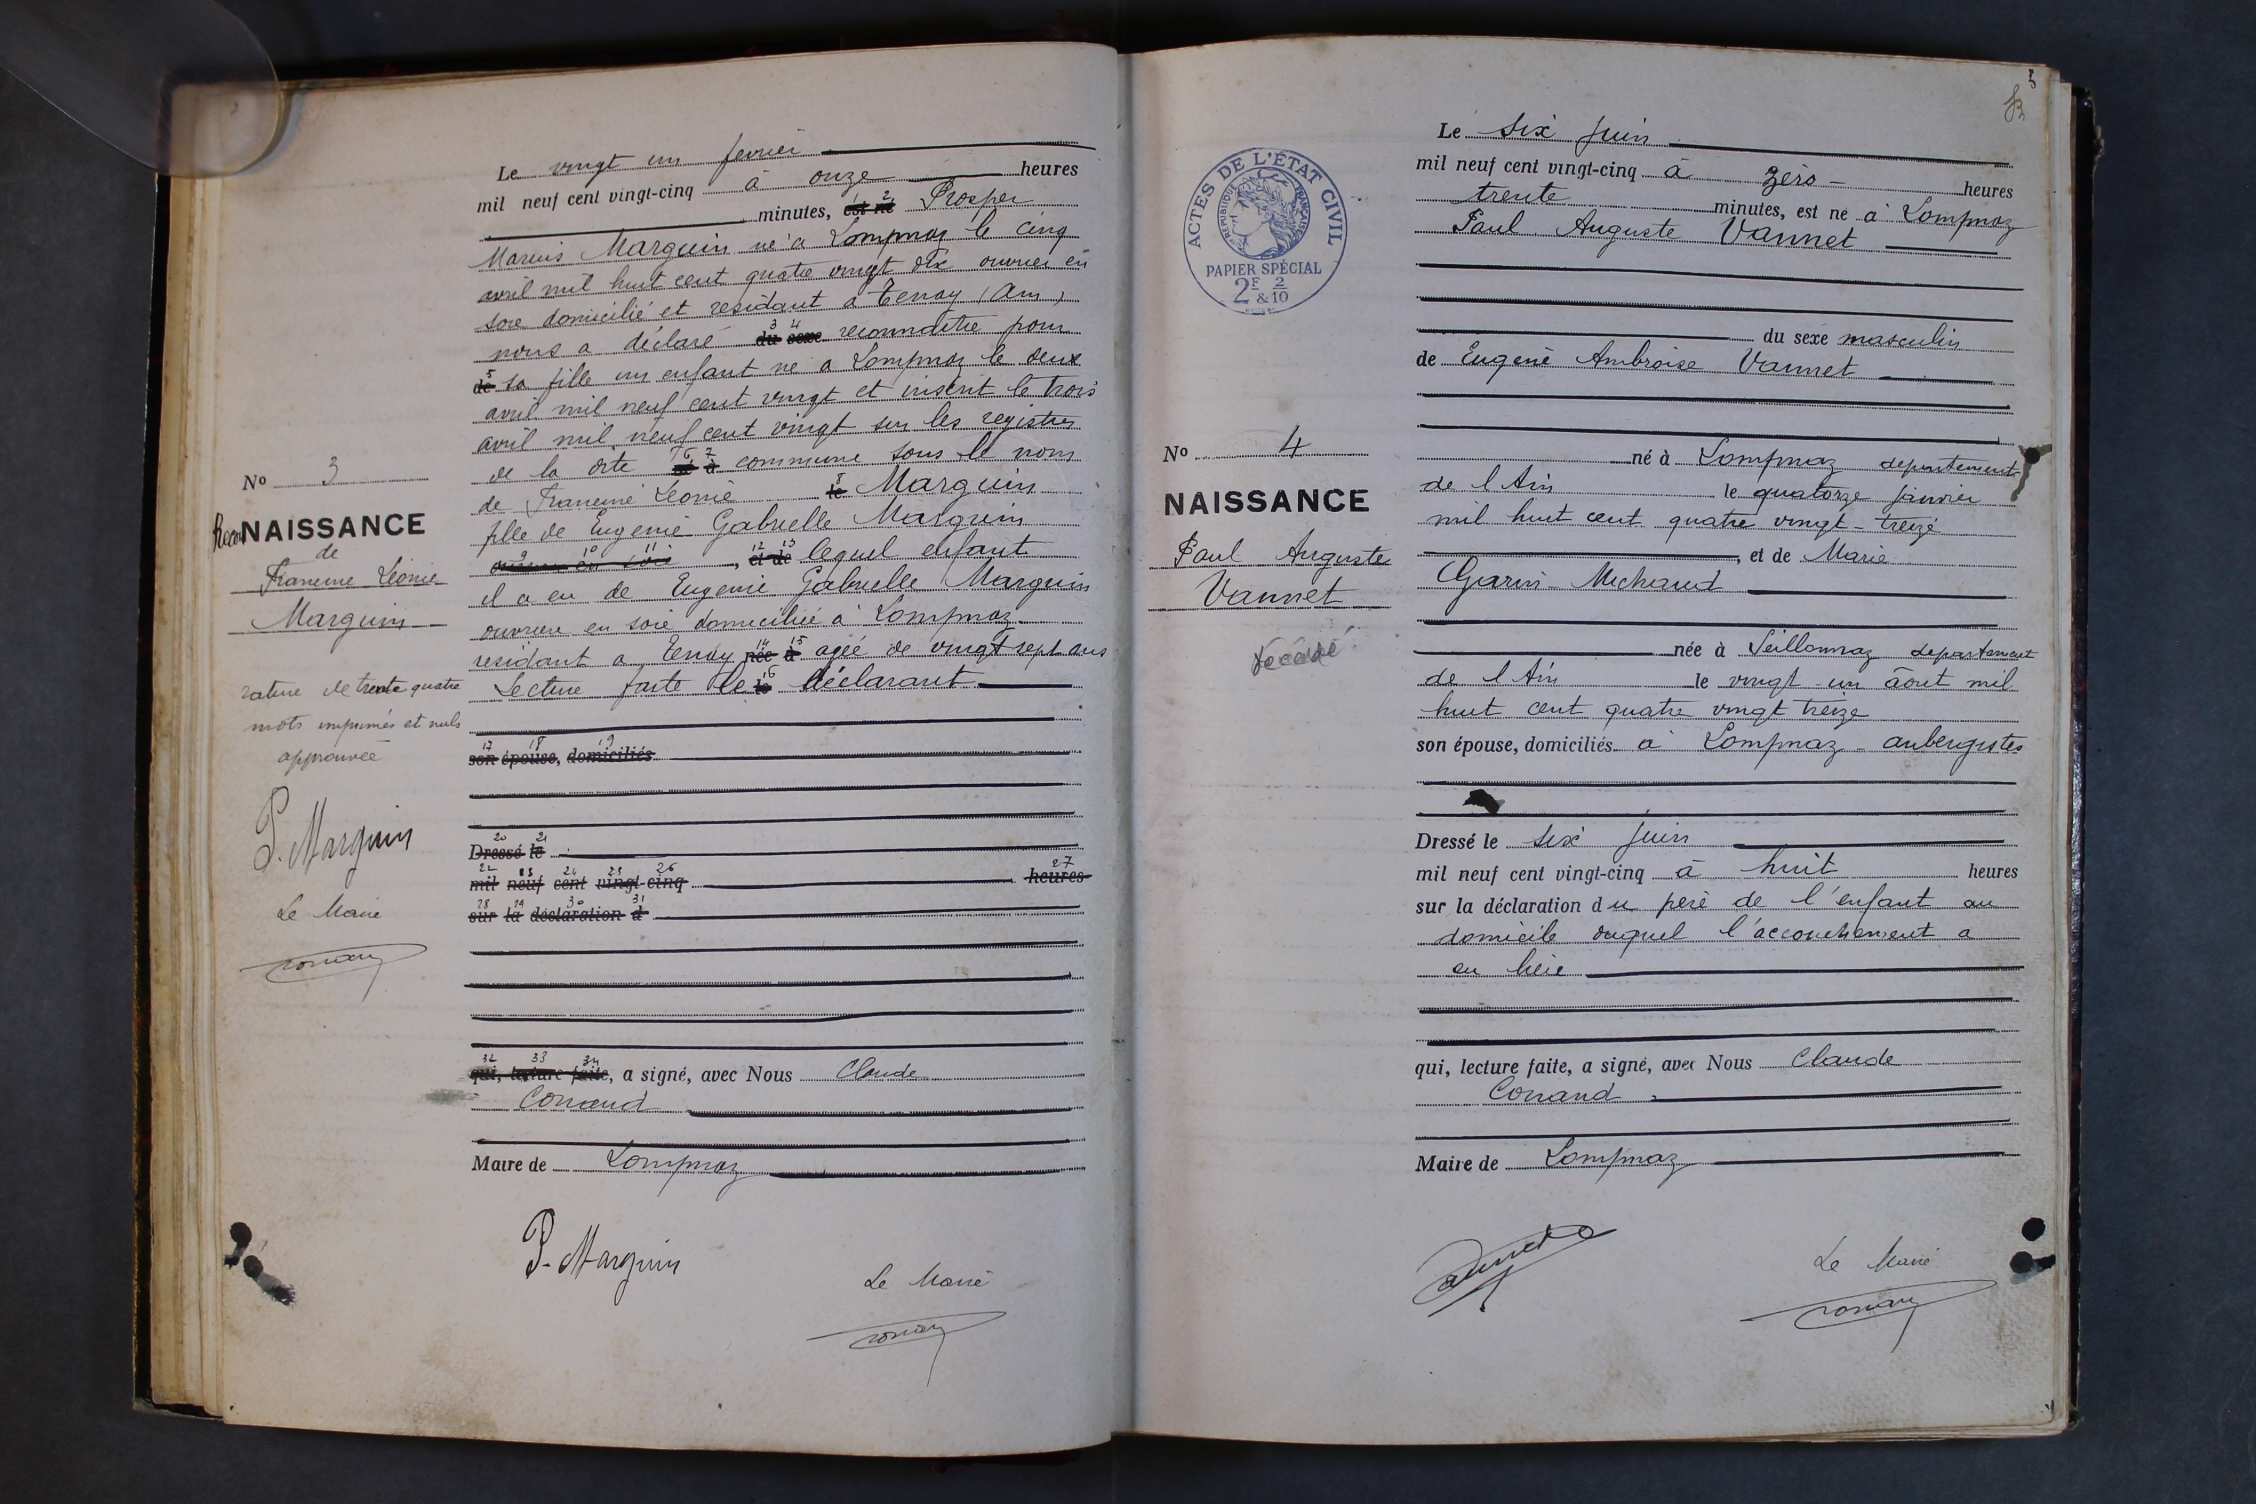 Le vingt un fevrier
mil neuf cent vingt-cinq à onze heures
minutes, est né Prosper
1 2
Marius Marguin né a Lompnaz le cinq
avril mil huit cent quatre vingt dix ouvrier en
soie domicilié et residant a Tenay (Ain)
nous a déclaré du sexe reconnaitre pour
3 4
de sa fille un enfant né a Lompnaz le deux
5
avril mil neuf cent vingt et inscrit le trois
avril mil neuf cent vingt sur les registres
de la dite né à commune sous le nom
6 7
de Francine Leonie le Marguin
8
fille de Eugenie Gabrielle Marguin
ouvrière en soie, et de lequel enfant
9 10 11 12 13
il a eu de Eugenie Gabrielle Marguin
ouvriere en soie domiciliée à Lompnaz
residant a Tenay née à agée de vingt sept ans
14 15
Lecture faite le le déclarant
16
son épouse, domiciliés
17 18 19
Dressé le
20 21
mil neuf cent vingt-cinq heures
22 23 24 25 26 27
sur la déclaration d
28 29 30 31
qui, lecture faite, a signé, avec Nous Claude
32 33 34
Conand
Maire de Lompnaz
P. Marguin
Le Maire
Conand
No 3
Recon NAISSANCE
de
Francine Léonie
Marguin
rature de trente quatre
mots imprimés et nuls
approuvée
P. Marguin
Le Maire
Conand
5
ACTES DE L'ÉTAT CIVIL
RÉPUBLIQUE FRANÇAISE
PAPIER SPÉCIAL
2F & 2/10
No 4
NAISSANCE
Paul Auguste
Vannet
décédé
Le six juin
mil neuf cent vingt-cinq à zéro heures
trente minutes, est né à Lompnaz
Paul Auguste Vannet
du sexe masculin
de Eugene Ambroise Vannet
né à Lompnaz departement
de l Ain le quatorze janvier
mil huit cent quatre vingt-treize
, et de Marie
Garin-Michaud
née à Seillonnaz departement
de l Ain le vingt-un âout mil
huit cent quatre vingt treize
son épouse, domiciliés à Lompnaz - aubergistes
Dressé le six juin
mil neuf cent vingt-cinq à huit heures
sur la déclaration du père de l'enfant au
domicile duquel l'accouchement a
eu lieu
qui, lecture faite, a signé, avec Nous Claude
Conand
Maire de Lompnaz
Le Maire
Conand